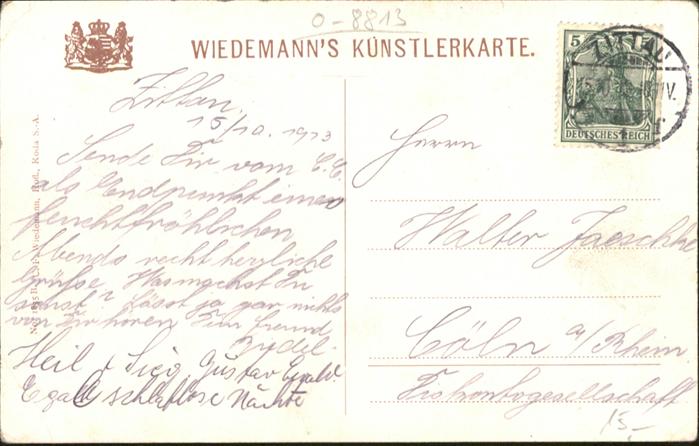 0-8813
WIEDEMANN'S KÜNSTLERKARTE.
5
ZITTAU
DEUTSCHES REICH
Zittau,
15/10. 1913
Sende Dir vom C.C.
als Endpunkt eines
feuchtfröhlichen
Abends recht herzliche
Grüße. Was machst Du
sonst? Lässt ja gar nichts
von Dir hören. Dein Freund
Heil & Sieg, Gustav Ewald
Egal schlaflose Nächte
Herrn
Walter Jaeschke
Cöln a/Rhein
Diskontogesellschaft
15-